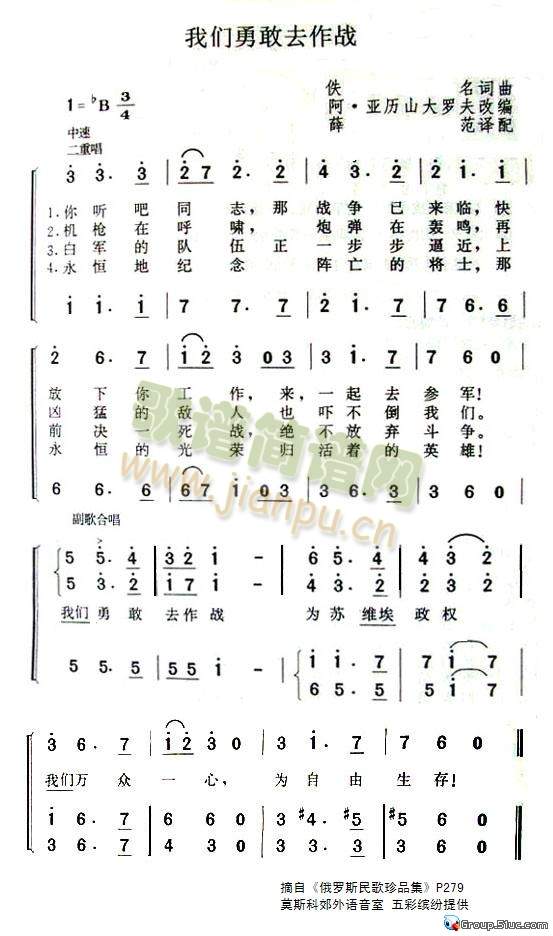 我们勇敢去作战
佚名词曲
1=♭B 3/4
阿·亚历山大罗夫改编
薛范译配
中速
二重唱
3 3. 3 2 7 2. 2 4 4. 3 2 1. 1
1.你听吧同志，那战争已来临，快
2.机枪在呼啸，炮弹在轰鸣，再
3.白军的队伍正一步步逼近，上
4.永恒地纪念阵亡的将士，那
1 1. 1 7 7. 7 1 1. 1 7 6. 6
2 6. 7 1 2 03 3 1. 7 7 6 0
放下你工作，来，一起去参军！
凶猛的敌人也吓不倒我们。
前决一死战，绝不放弃斗争。
永恒的光荣归活着的英雄！
6 6. 6 6 7 1 03 3 6. 3 3 6 0
副歌合唱
5 5. 4 3 2 1 - 6 5. 4 4 3 2
5 3. 2 1 7 1 - 4 3. 2 2 1 7
我们勇敢去作战 为苏维埃政权
5 5. 5 5 5 1 - 1 1. 7 7 1 7
6 5. 5 5 6 5
3 6. 7 1 2 3 0 3 1. 7 7 6 0
我们万众一心，为自由生存！
1 6. 7 1 6 3 0 3 #4. #5 5 6 0
3 3. 3 3 3 3 0 3 #4. 5 5 6 0
歌谱简谱网
www.jianpu.cn
摘自《俄罗斯民歌珍品集》P279
莫斯科郊外语音室 五彩缤纷提供
Group.51uc.com